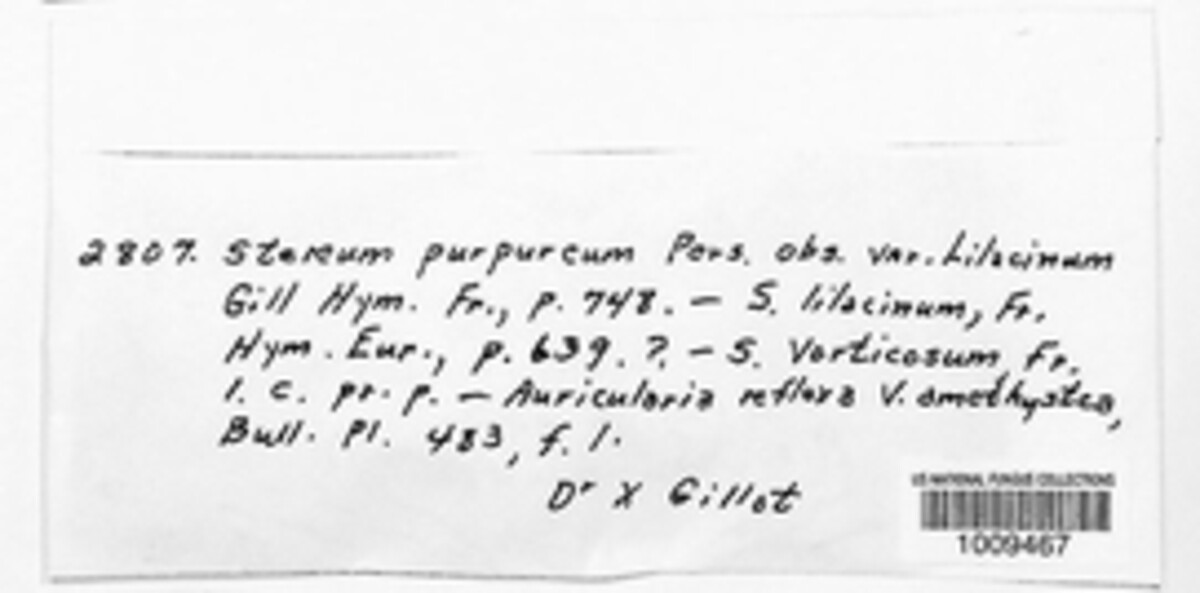 2807. Stereum purpureum Pers. obs. var. Lilacinum
Gill Hym. Fr., p. 748. — S. lilacinum, Fr.
Hym. Eur., p. 639. ?. — S. Vorticosum Fr.
l. c. pr. p. — Auricularia reflora V. amethystea,
Bull. Pl. 483, f. 1.
Dr X Gillot
US NATIONAL FUNGUS COLLECTIONS
1009467